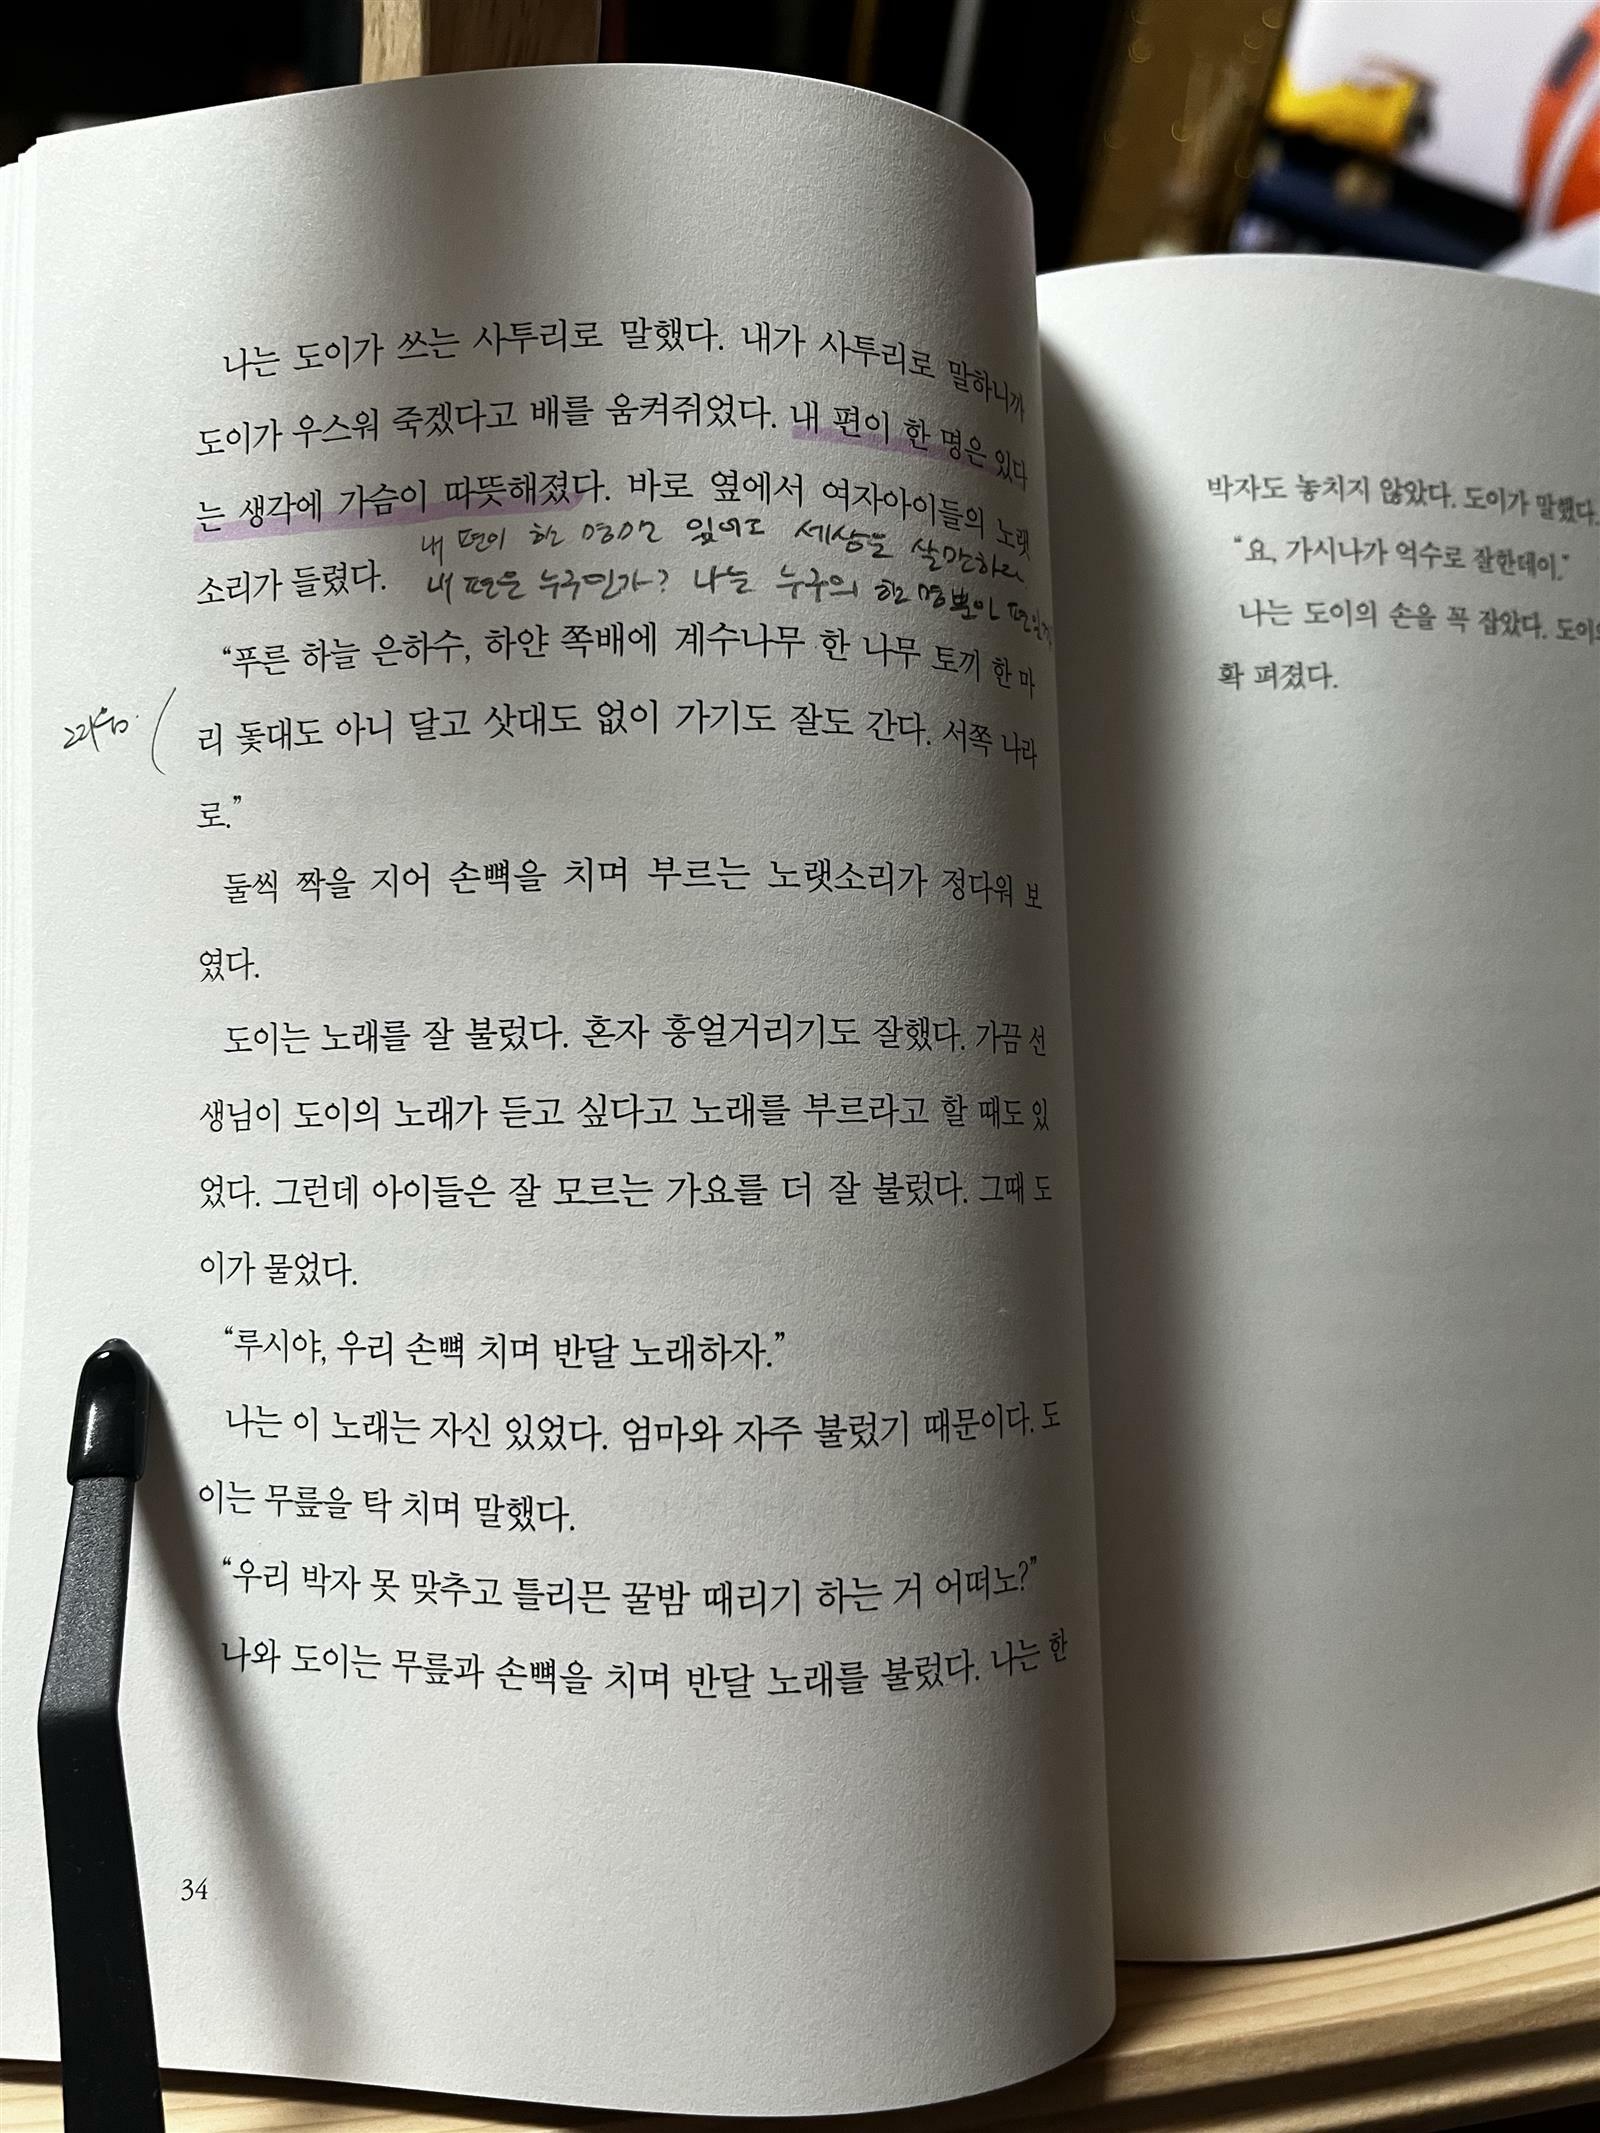 나는 도이가 쓰는 사투리로 말했다. 내가 사투리로 말하니까
도이가 우스워 죽겠다고 배를 움켜쥐었다. 내 편이 한 명은 있다
는 생각에 가슴이 따뜻해졌다. 바로 옆에서 여자아이들의 노랫
내 편이 한 명만 있어도 세상은 살만하리
소리가 들렸다.
내 편은 누구인가? 나는 누구의 한 명뿐인
“푸른 하늘 은하수, 하얀 쪽배에 계수나무 한 나무 토끼 한 마
리 돛대도 아니 달고 삿대도 없이 가기도 잘도 간다. 서쪽 나라
로.”
둘씩 짝을 지어 손뼉을 치며 부르는 노랫소리가 정다워 보
였다.
도이는 노래를 잘 불렀다. 혼자 흥얼거리기도 잘했다. 가끔 선
생님이 도이의 노래가 듣고 싶다고 노래를 부르라고 할 때도 있
었다. 그런데 아이들은 잘 모르는 가요를 더 잘 불렀다. 그때 도
이가 물었다.
“루시야, 우리 손뼉 치며 반달 노래하자.”
나는 이 노래는 자신 있었다. 엄마와 자주 불렀기 때문이다. 도
이는 무릎을 탁 치며 말했다.
“우리 박자 못 맞추고 틀리믄 꿀밤 때리기 하는 거 어떠노?”
나와 도이는 무릎과 손뼉을 치며 반달 노래를 불렀다. 나는 한
34
박자도 놓치지 않았다. 도이가 말했다.
“요, 가시나가 억수로 잘한데이.”
나는 도이의 손을 꼭 잡았다.
확 펴졌다.